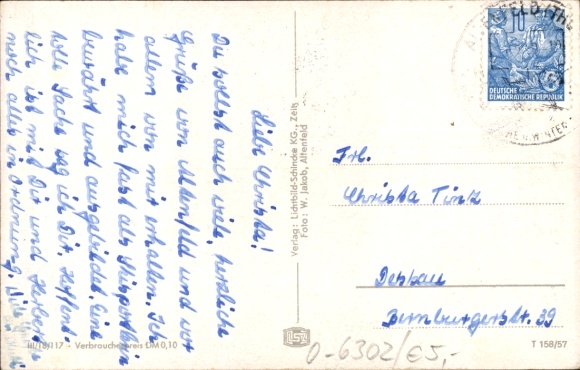 Liebe Christa!
Du sollst auch viele, herzliche
Grüße von Altenfeld und vor
allem von mir erhalten. Ich
habe mich fast als Skisportlerin
bewährt und ausgebildet. Eine
tolle Sache sag ich Dir. Hoffent-
lich ist mit Dir und Herbert
noch alles in Ordnung.
III/18/117 - Verbraucherpreis DM 0,10
Verlag: Lichtbild-Schincke KG., Zeitz
Foto: W. Jakob, Altenfeld
10
DEUTSCHE
DEMOKRATISCHE REPUBLIK
ALTENFELD (THÜR
WINTER
Frl.
Christa Tinz
Dessau
Bernburgerstr. 39
T 158/57
0-6302/€5,-